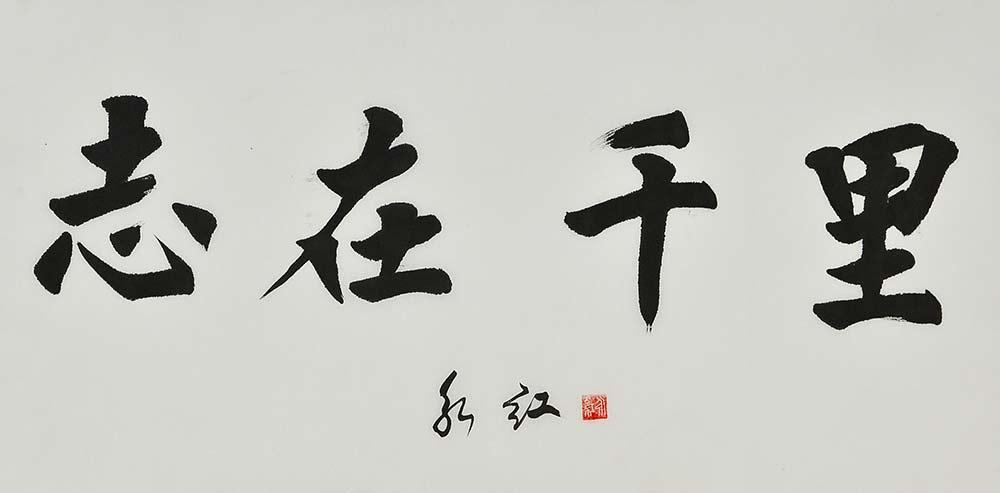 志在千里
永红